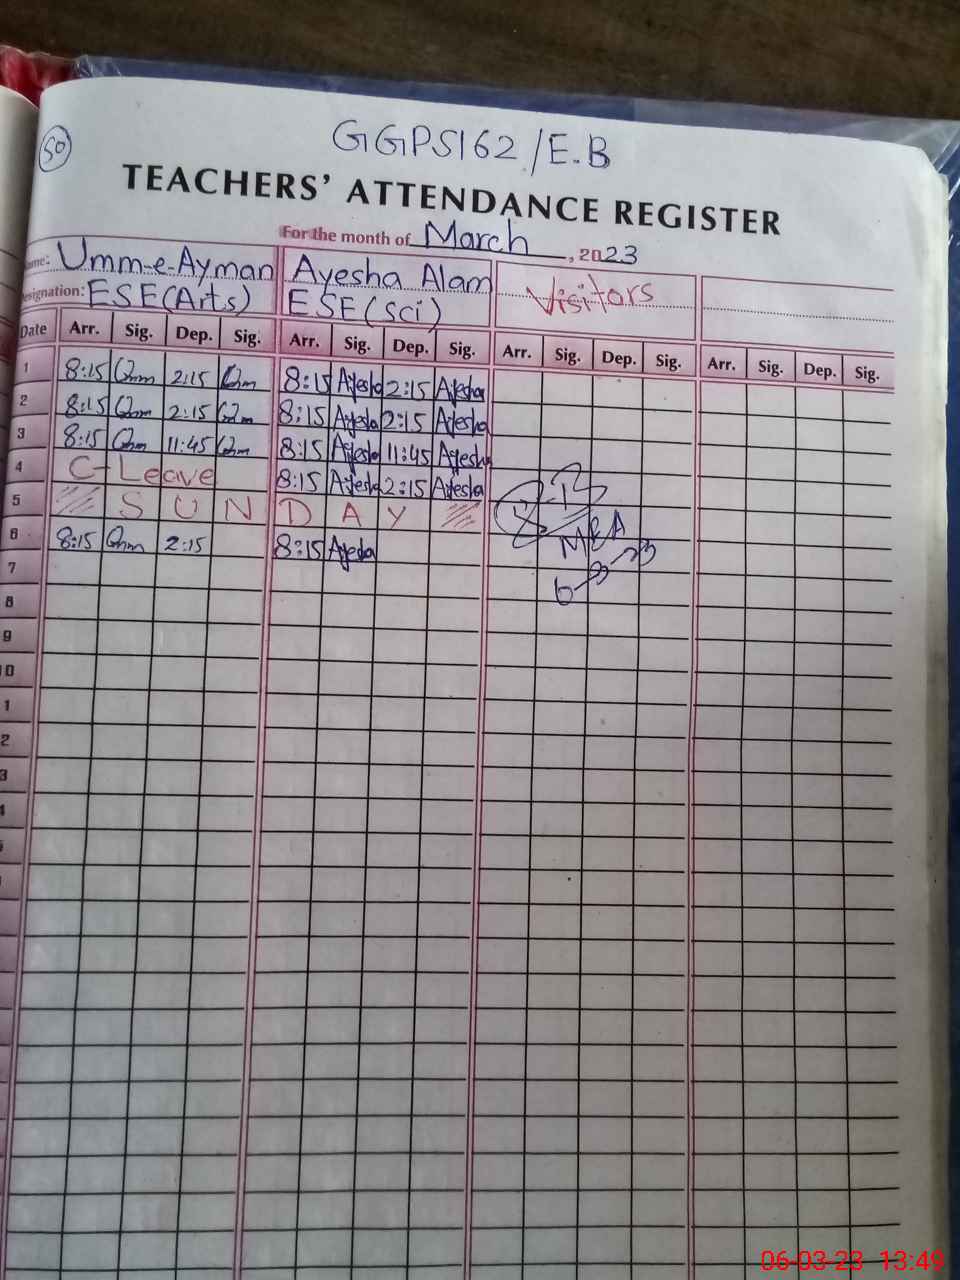 50
GGPS162/E.B
TEACHERS' ATTENDANCE REGISTER
For the month of March, 2023
Name: Umm-e-Ayman Ayesha Alam Visitors
Designation: ESE(Arts) ESE(Sci)
Date Arr. Sig. Dep. Sig. Arr. Sig. Dep. Sig. Arr. Sig. Dep. Sig. Arr. Sig. Dep. Sig.
1 8:15 2:15 8:15 Ayesha 2:15 Ayesha
2 8:15 2:15 8:15 Ayesha 2:15 Ayesha
3 8:15 11:45 8:15 Ayesha 11:45 Ayesha
4 C-Leave 8:15 Ayesha 2:15 Ayesha
5 SUNDAY
6 8:15 2:15 8:15 Ayesha
MEA
6-3-23
7
8
9
10
1
2
3
06-03-23 13:49